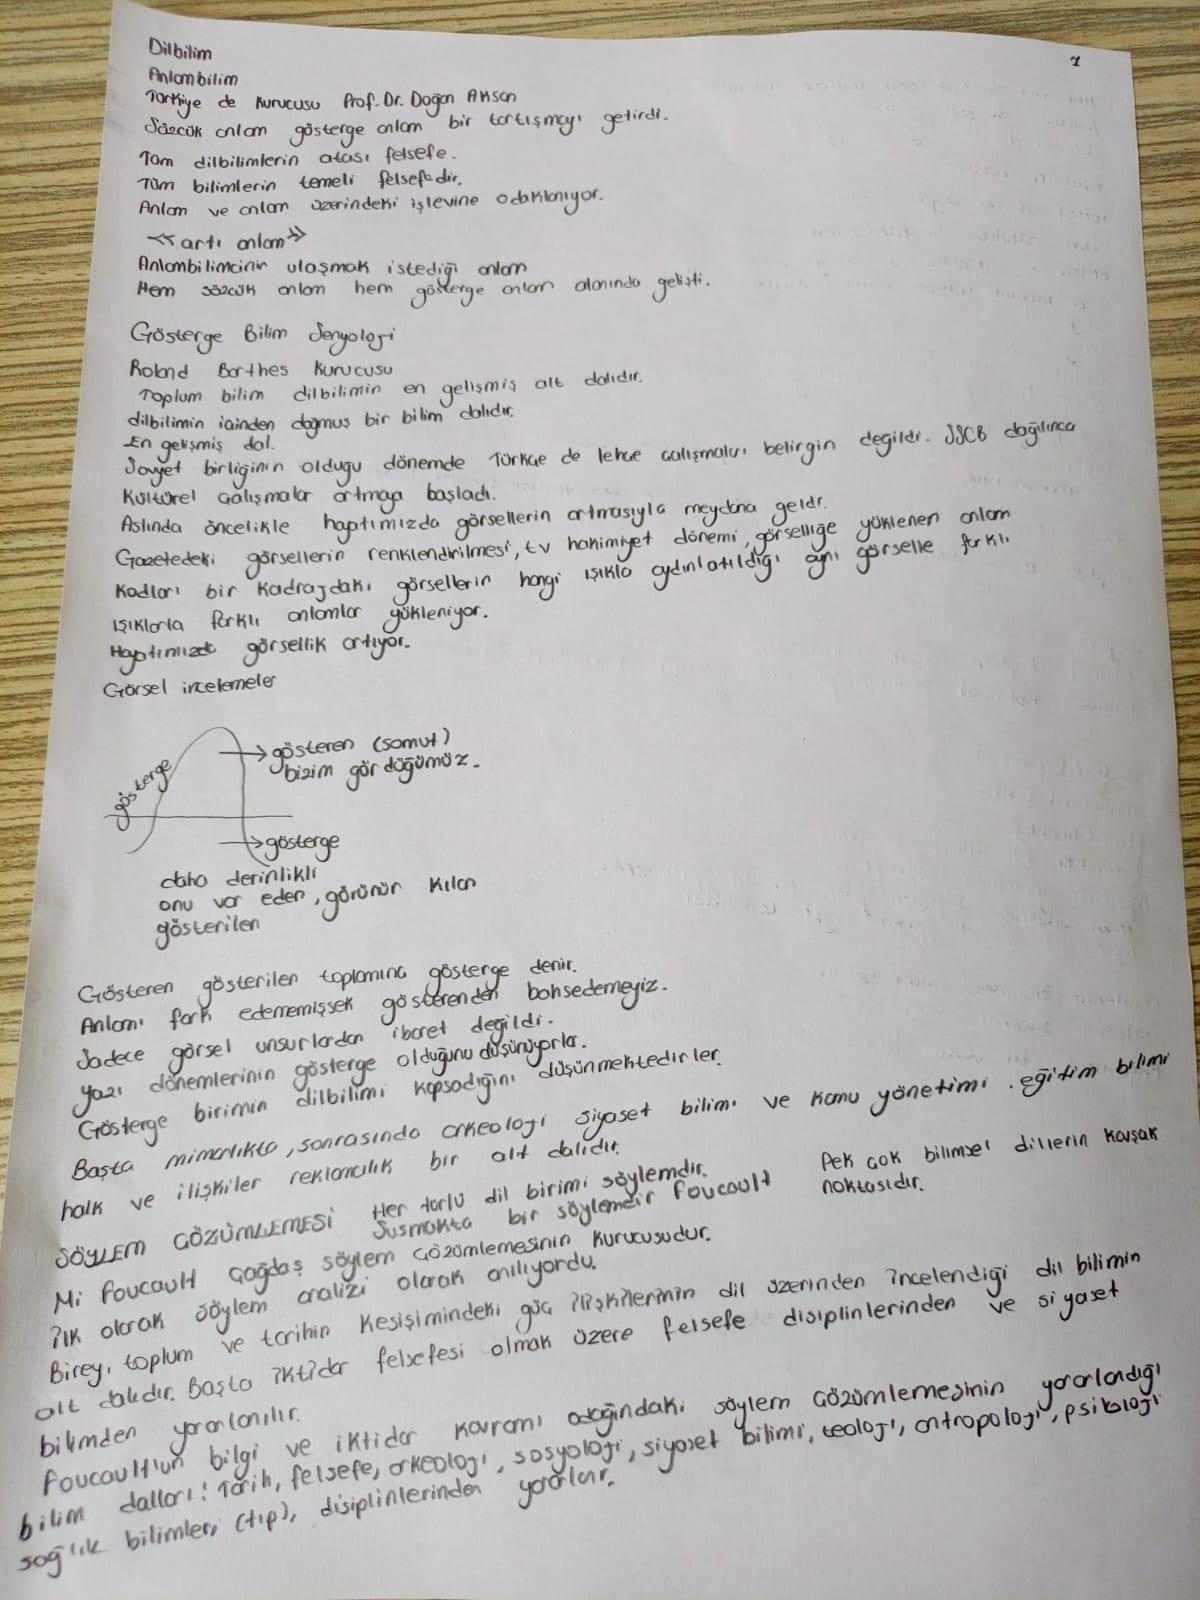 1
Dilbilim
Anlambilim
Türkiye de kurucusu Prof. Dr. Doğan Aksan
Sözcük anlam gösterge anlam bir tartışmayı getirdi.
Tüm dilbilimlerin atası felsefe.
Tüm bilimlerin temeli felsefedir.
Anlam ve anlam üzerindeki işlevine odaklanıyor.
<<artı anlam>>
Anlambilimcinin ulaşmak istediği anlam
Hem sözcük anlam hem gösterge anlam alanında gelişti.
Gösterge Bilim Semyoloji
Roland Barthes kurucusu
Toplum bilim dilbilimin en gelişmiş alt dalıdır.
dilbilimin içinden doğmuş bir bilim dalıdır.
En gelişmiş dal.
Sovyet birliğinin olduğu dönemde Türkçe de lehçe çalışmaları belirgin değildi. SSCB dağılınca
kültürel çalışmalar artmaya başladı.
Aslında öncelikle hayatımızda görsellerin artmasıyla meydana geldi.
Gazetedeki görsellerin renklendirilmesi, tv hakimiyet dönemi, görselliğe yüklenen anlam
kodları bir kadrajdaki görsellerin hangi ışıkla aydınlatıldığı aynı görselle farklı
ışıklarla farklı anlamlar yükleniyor.
Hayatımızda görsellik artıyor.
Görsel incelemeler
gösterge
gösteren (somut)
bizim gördüğümüz.
gösterge
daha derinlikli
onu var eden, görünür kılan
gösterilen
Gösteren gösterilen toplamına gösterge denir.
Anlamı fark edememişsek gösterenden bahsedemeyiz.
Sadece görsel unsurlardan ibaret değildi.
yazı dönemlerinin gösterge olduğunu düşünüyorlar.
Gösterge birimin dilbilimi kapsadığını düşünmektedirler.
Başta mimarlıkta, sonrasında arkeoloji siyaset bilimi ve kamu yönetimi . eğitim bilimi
halk ve ilişkiler reklamcılık bir alt dalıdır.
SÖYLEM ÇÖZÜMLEMESİ Her türlü dil birimi söylemdir. Pek çok bilimsel dillerin kavşak
Susmakta bir söylemdir Foucault noktasıdır.
Mi Foucault çağdaş söylem çözümlemesinin kurucusudur.
İlk olarak söylem analizi olarak anılıyordu.
Birey, toplum ve tarihin kesişimindeki güç ilişkilerinin dil üzerinden incelendiği dil bilimin
alt dalıdır. Başta iktidar felsefesi olmak üzere felsefe disiplinlerinden ve siyaset
bilimden yararlanılır.
Foucault'un bilgi ve iktidar kavramı odağındaki söylem çözümlemesinin yararlandığı
bilim dalları: Tarih, felsefe, arkeoloji, sosyoloji, siyaset bilimi, teoloji, antropoloji, psikoloji
sağlık bilimleri (tıp), disiplinlerinden yararlanır.